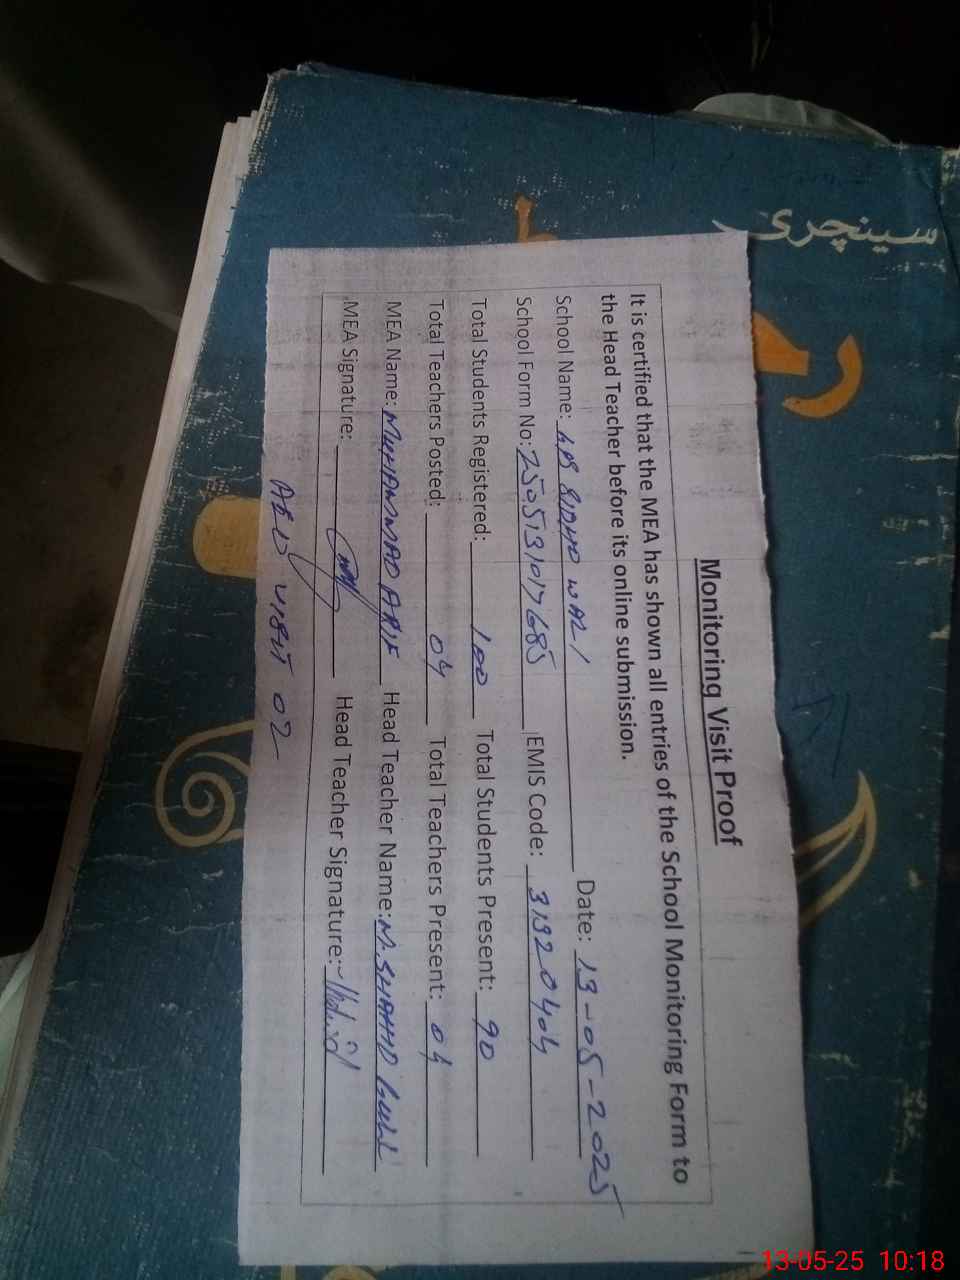 سینچری
Monitoring Visit Proof
It is certified that the MEA has shown all entries of the School Monitoring Form to
the Head Teacher before its online submission.
School Name: Date: 13-05-2025
School Form No: 2505131017685 EMIS Code: 31320404
Total Students Registered: 100 Total Students Present: 90
Total Teachers Posted: 04 Total Teachers Present: 04
MEA Name: MUHAMMAD ARIF Head Teacher Name: M. SHAHID GULL
MEA Signature: Head Teacher Signature:
AEO VISIT 02
13-05-25 10:18